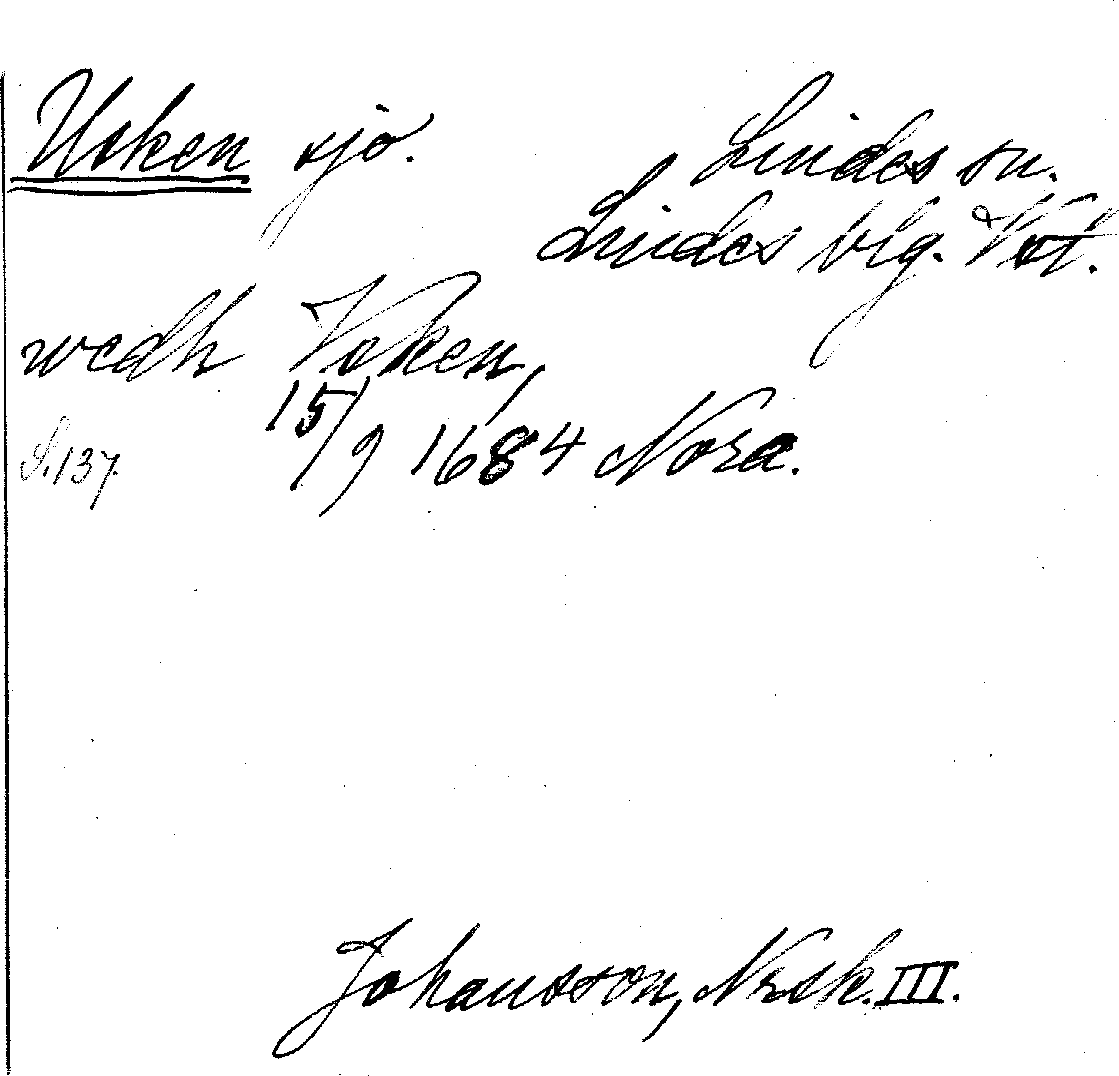 Usken sjö. Lindes sn.
Lindes blg. Vst.
wedh Vsken,
S.137. 15/9 1684 Nora.
Johansson, Nrsk. III.